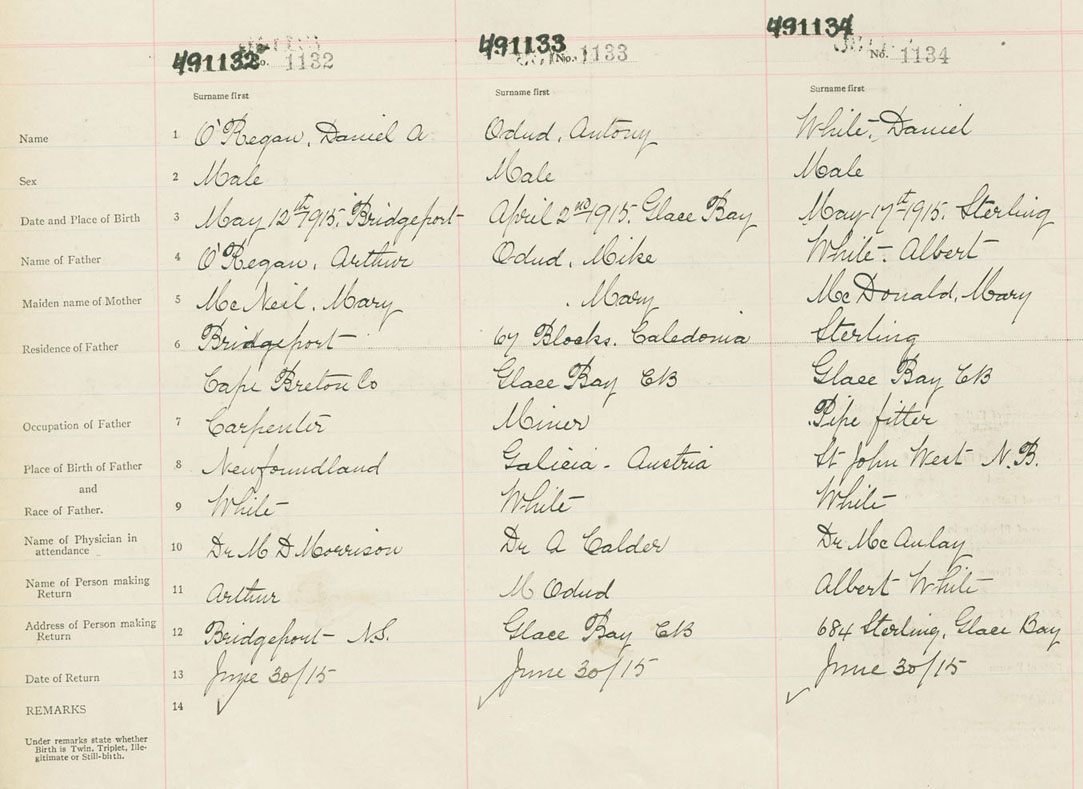 491132 No. 1132 491133 No. 1133 491134 No. 1134
Surname first Surname first Surname first
Name 1 O'Regan, Daniel A. Odud, Antony White, Daniel
Sex 2 Male Male Male
Date and Place of Birth 3 May 12th 1915. Bridgeport April 2nd 1915. Glace Bay May 17th 1915. Sterling
Name of Father 4 O'Regan, Arthur Odud, Mike White - Albert
Maiden name of Mother 5 McNeil, Mary , Mary McDonald, Mary
Residence of Father 6 Bridgeport 67 Blocks. Caledonia Sterling
Cape Breton Co Glace Bay CB Glace Bay CB
Occupation of Father 7 Carpenter Miner Pipe fitter
Place of Birth of Father 8 Newfoundland Galicia - Austria St John West N.B.
and
Race of Father. 9 White White White
Name of Physician in attendance 10 Dr M D Morrison Dr A Calder Dr McAulay
Name of Person making Return 11 Arthur M Odud Albert White
Address of Person making Return 12 Bridgeport N.S. Glace Bay CB 684 Sterling, Glace Bay
Date of Return 13 June 30/15 June 30/15 June 30/15
REMARKS 14
Under remarks state whether
Birth is Twin, Triplet, Ille-
gitimate or Still-birth.